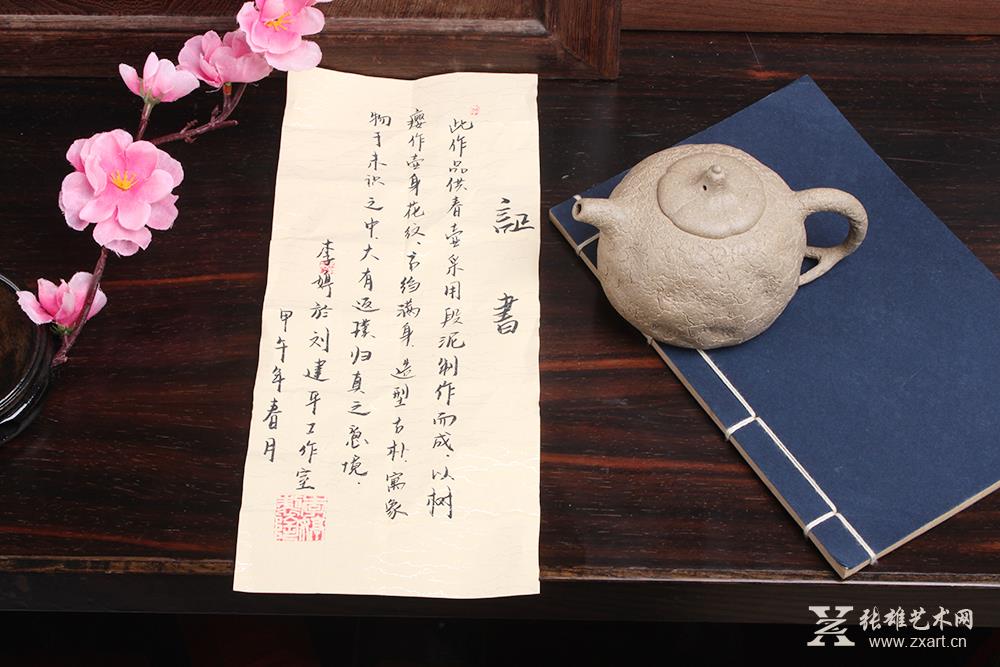 証書
此作品供春壶采用段泥制作而成.以树
瘿作壶身花纹、布满身.造型古朴.寓象
物于未识之中.大有返璞归真之意境.
李婷於刘建平工作室
甲午年春月
张雄艺术网
www.zxart.cn